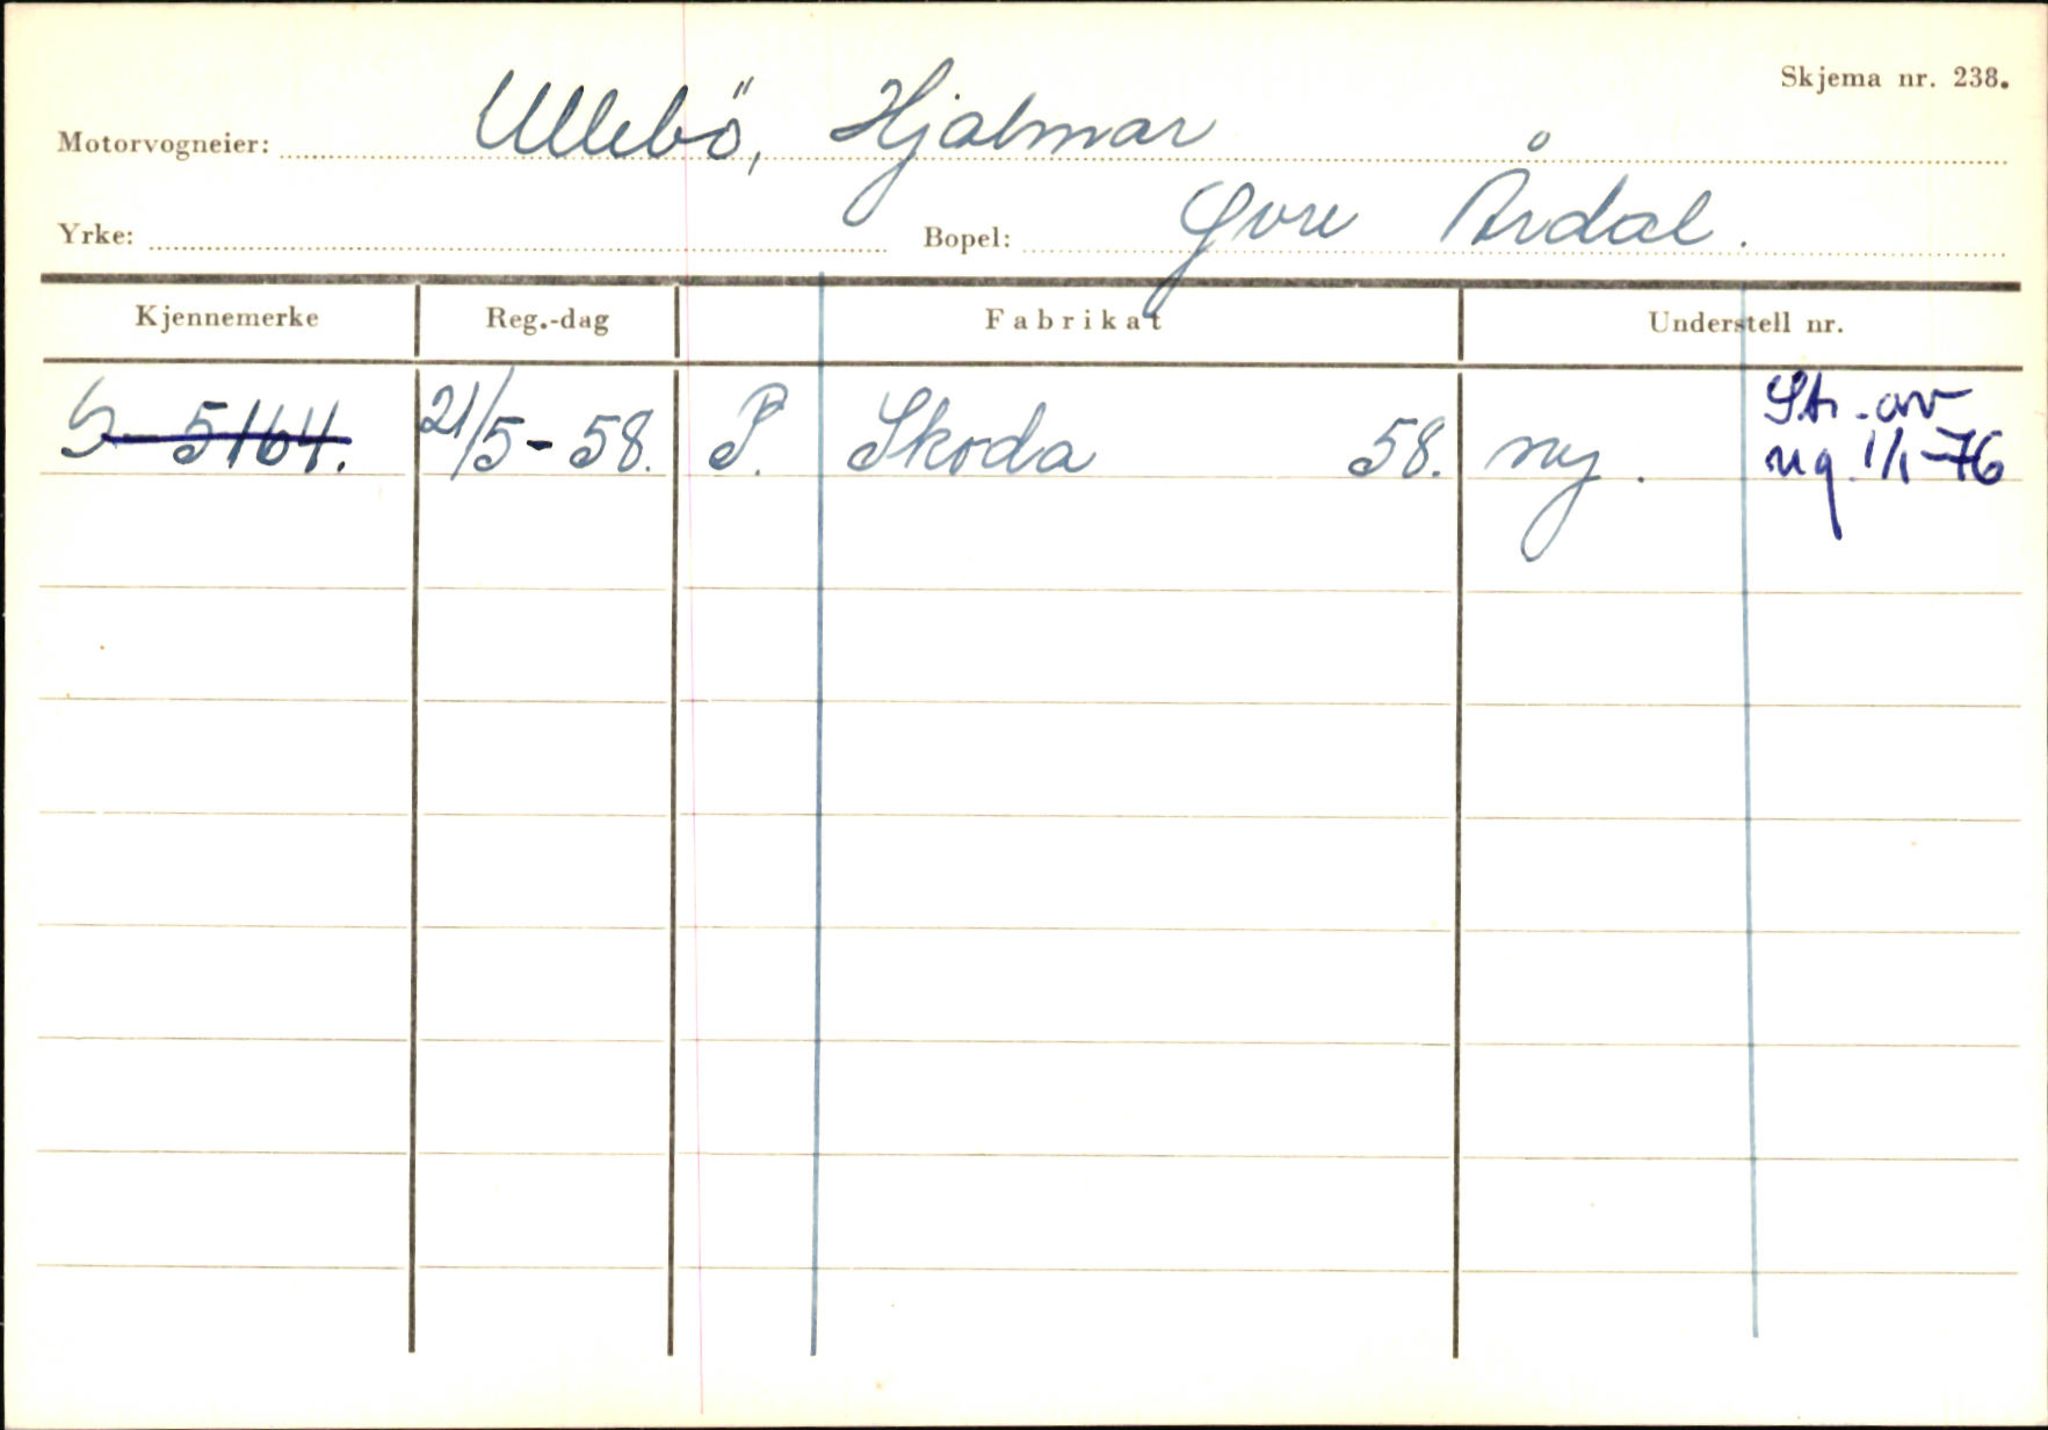 Skjema nr. 238.
Motorvogneier: Ullebö, Hjalmar
Yrke: Bopel: Øvre Årdal.
Kjennemerke Reg.-dag Fabrikat Understell nr.
S-5164. 21/5-58. P. Skoda 58. ny. Str. av
reg. 1/1-76